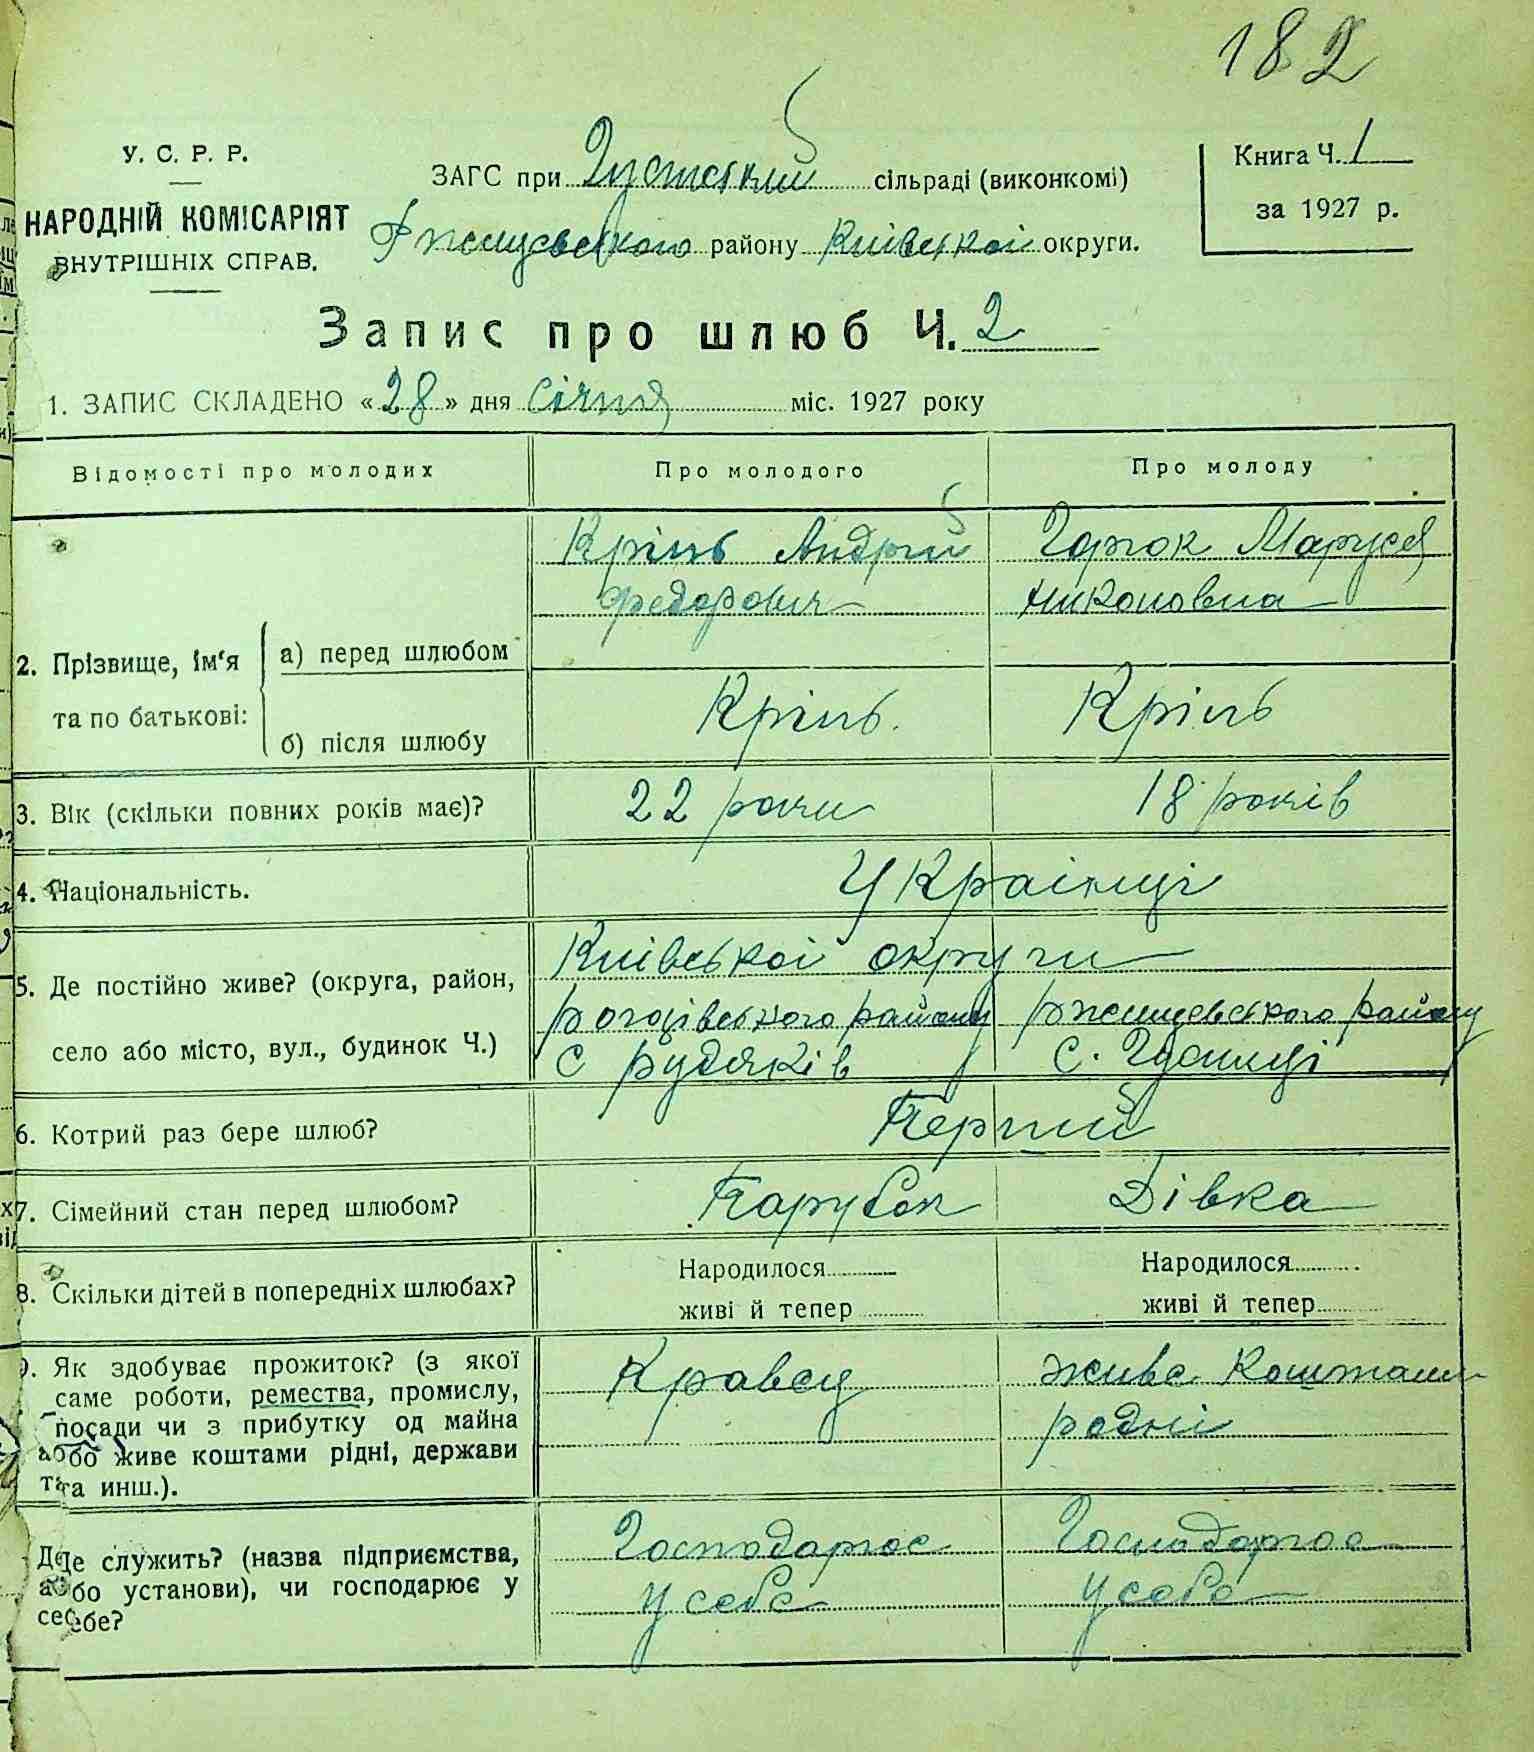 182
У. С. Р. Р.
НАРОДНІЙ КОМІСАРІЯТ
ВНУТРІШНІХ СПРАВ.
ЗАГС при сільраді (виконкомі)
району Київської округи.
Книга Ч. 1
за 1927 р.
Запис про шлюб Ч. 2
1. ЗАПИС СКЛАДЕНО «28» дня Січня міс. 1927 року
Відомості про молодих Про молодого Про молоду
2. Прізвище, ім‘я та по батькові:
а) перед шлюбом
Кріпь Андрій Федорович
Маруся Никоновна
б) після шлюбу
Кріпь. Кріпь
3. Вік (скільки повних років має)? 22 роки 18 років
4. Національність. Українці
5. Де постійно живе? (округа, район,
село або місто, вул., будинок Ч.)
Київської округи
рогозівського району
с рудяків
ржищевського району
с.
6. Котрий раз бере шлюб? Перший
7. Сімейний стан перед шлюбом? Парубок Дівка
8. Скільки дітей в попередніх шлюбах?
Народилося Народилося
живі й тепер живі й тепер
9. Як здобуває прожиток? (з якої
саме роботи, ремества, промислу,
посади чи з прибутку од майна
або живе коштами рідні, держави
та инш.).
Кравец
живе Коштами
родні
Де служить? (назва підприємства,
або установи), чи господарює у
себе?
Господарює
у себе
Господарює
у себе